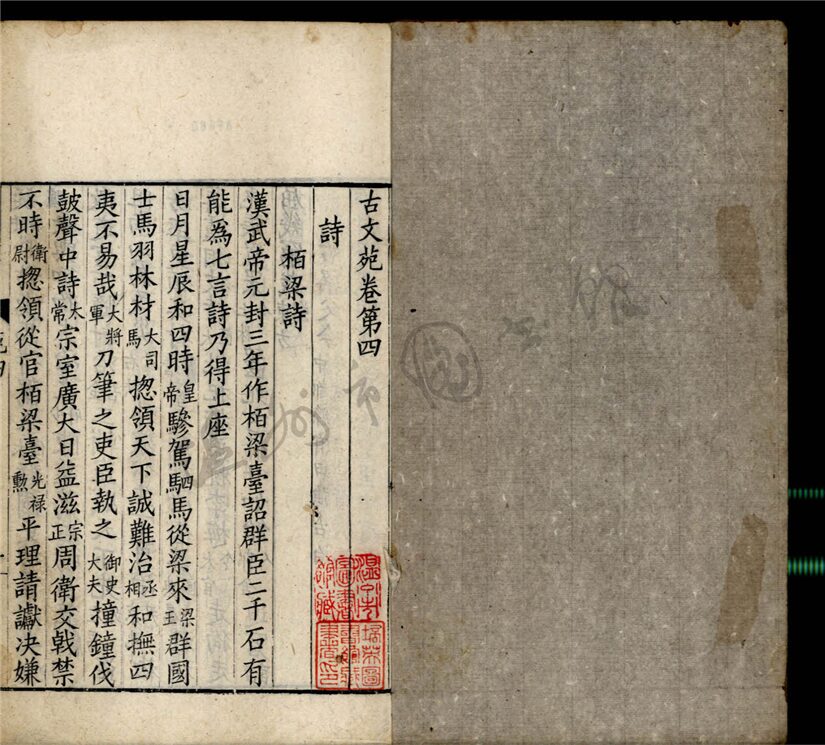 古文苑卷第四
詩
栢梁詩
漢武帝元封三年作栢梁臺詔群臣二千石有
能爲七言詩乃得上座
日月星辰和四時皇帝驂駕駟馬從梁來梁王群國
士馬羽林材大司馬揔領天下誠難治丞相和撫四
夷不易哉大將軍刀筆之吏臣執之御史大夫撞鐘伐
鼓聲中詩太常宗室廣大日益滋宗正周衛交戟禁
不時衛尉揔領從官栢梁臺光禄勲平理請讞决嫌